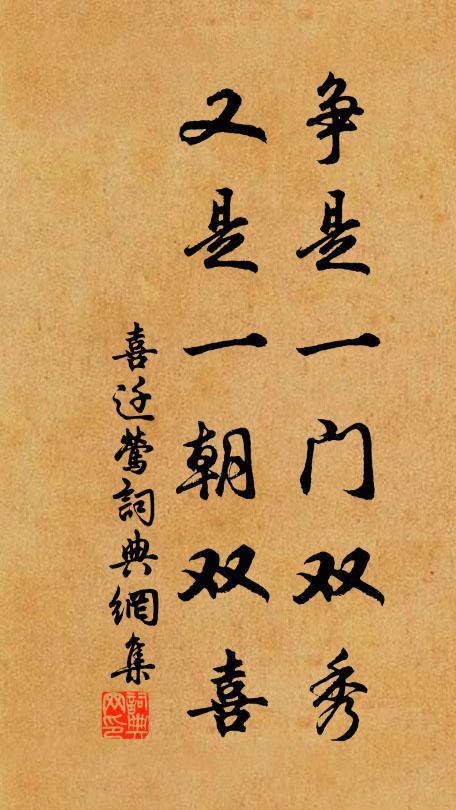 争是一门双秀
又是一朝双喜
喜迁莺詞典網集
詞典
网印